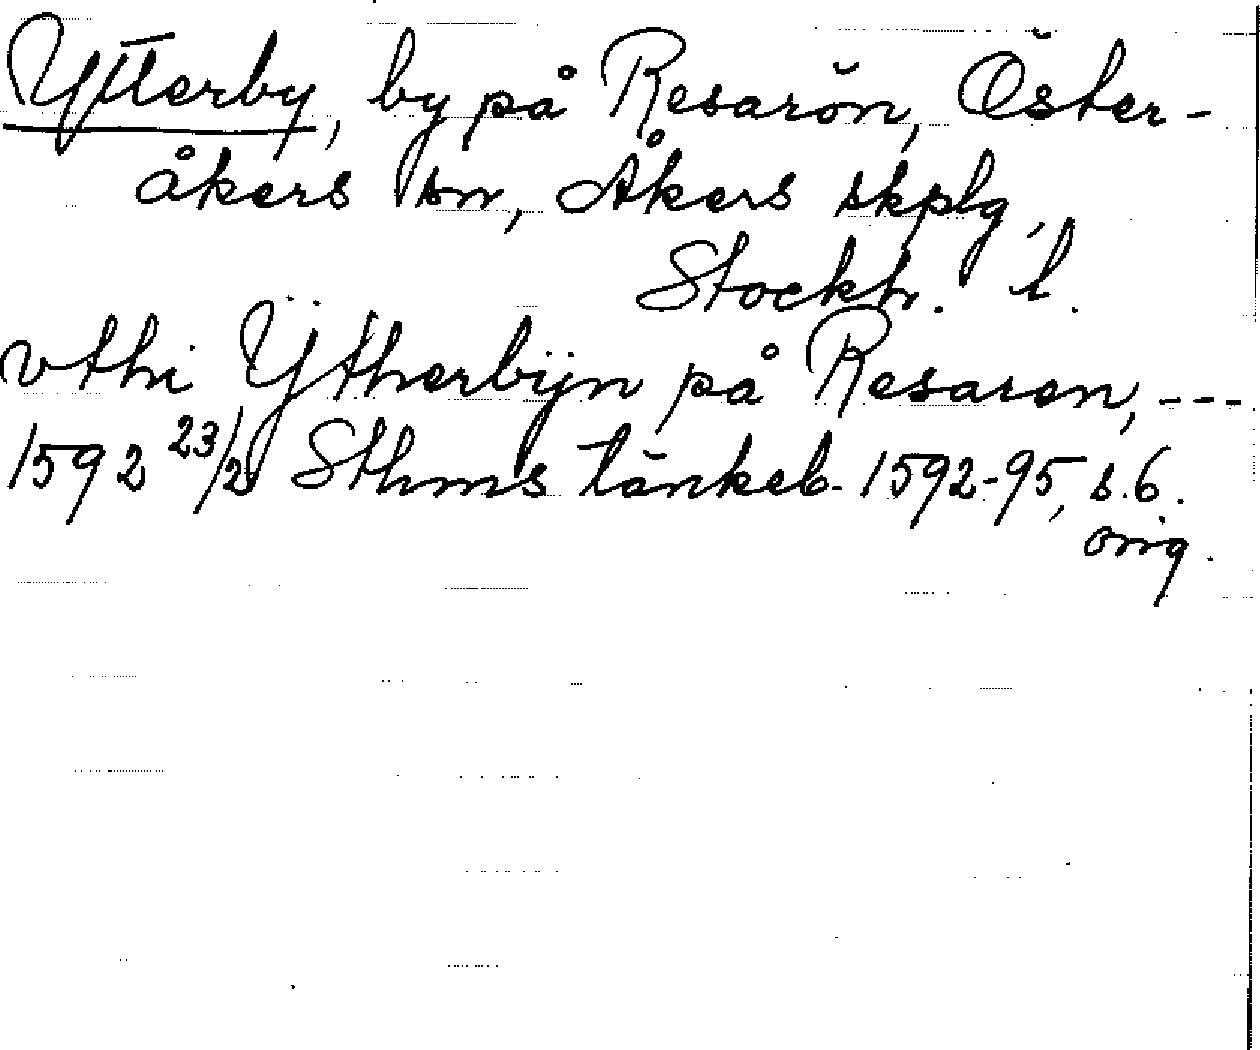 Ytterby, by på Resarön, Öster-
åkers sn, Åkers skplg,
Stockh. l.
vthi Ÿtherbijn på Resaren, ---
1592 23/2 Sthms tänkeb. 1592-95, s. 6.
orig.